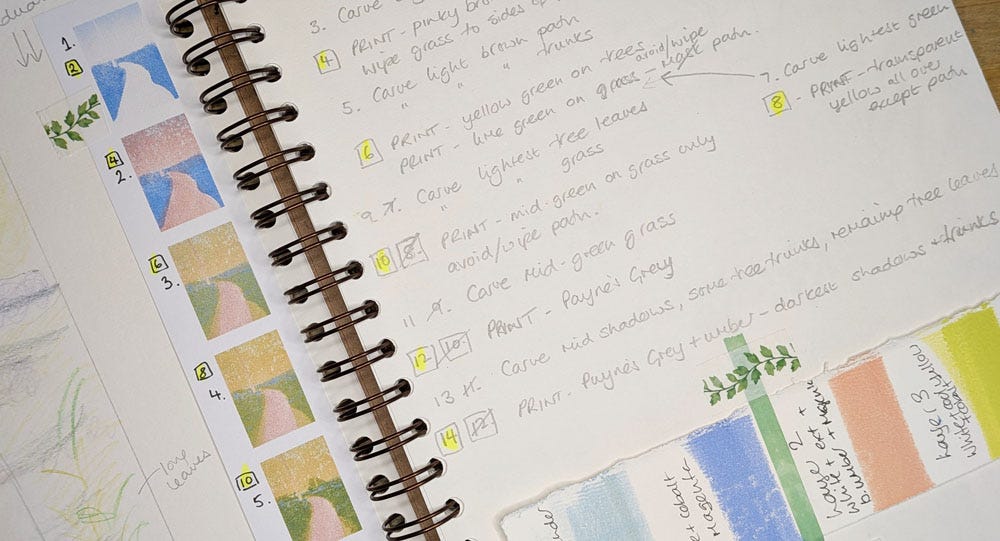 1.
2
4
2.
6
3.
8
4.
10
5.
long
leaves
3. Carve
4 PRINT - pinky
wipe grass to sides of
5. Carve light brown path
" " " trunks
6 PRINT - yellow green on trees avoid/wipe
PRINT - lime green on grass - most path.
7. Carve lightest green
8 - PRINT - transparent
yellow all over
except path
9. 7. Carve lightest tree leaves
" " grass
10 8. PRINT - mid-green on grass only
avoid/wipe path.
11 9. Carve mid-green grass
12 10. PRINT - Payne's Grey
13 11. Carve mid shadows, some tree trunks, remaining tree leaves
14 12. PRINT - Payne's Grey + umber - darkest shadows + trunks
cobalt
Magenta
Layer 2
white ext +
white + Magenta
b.umber
Layer 3